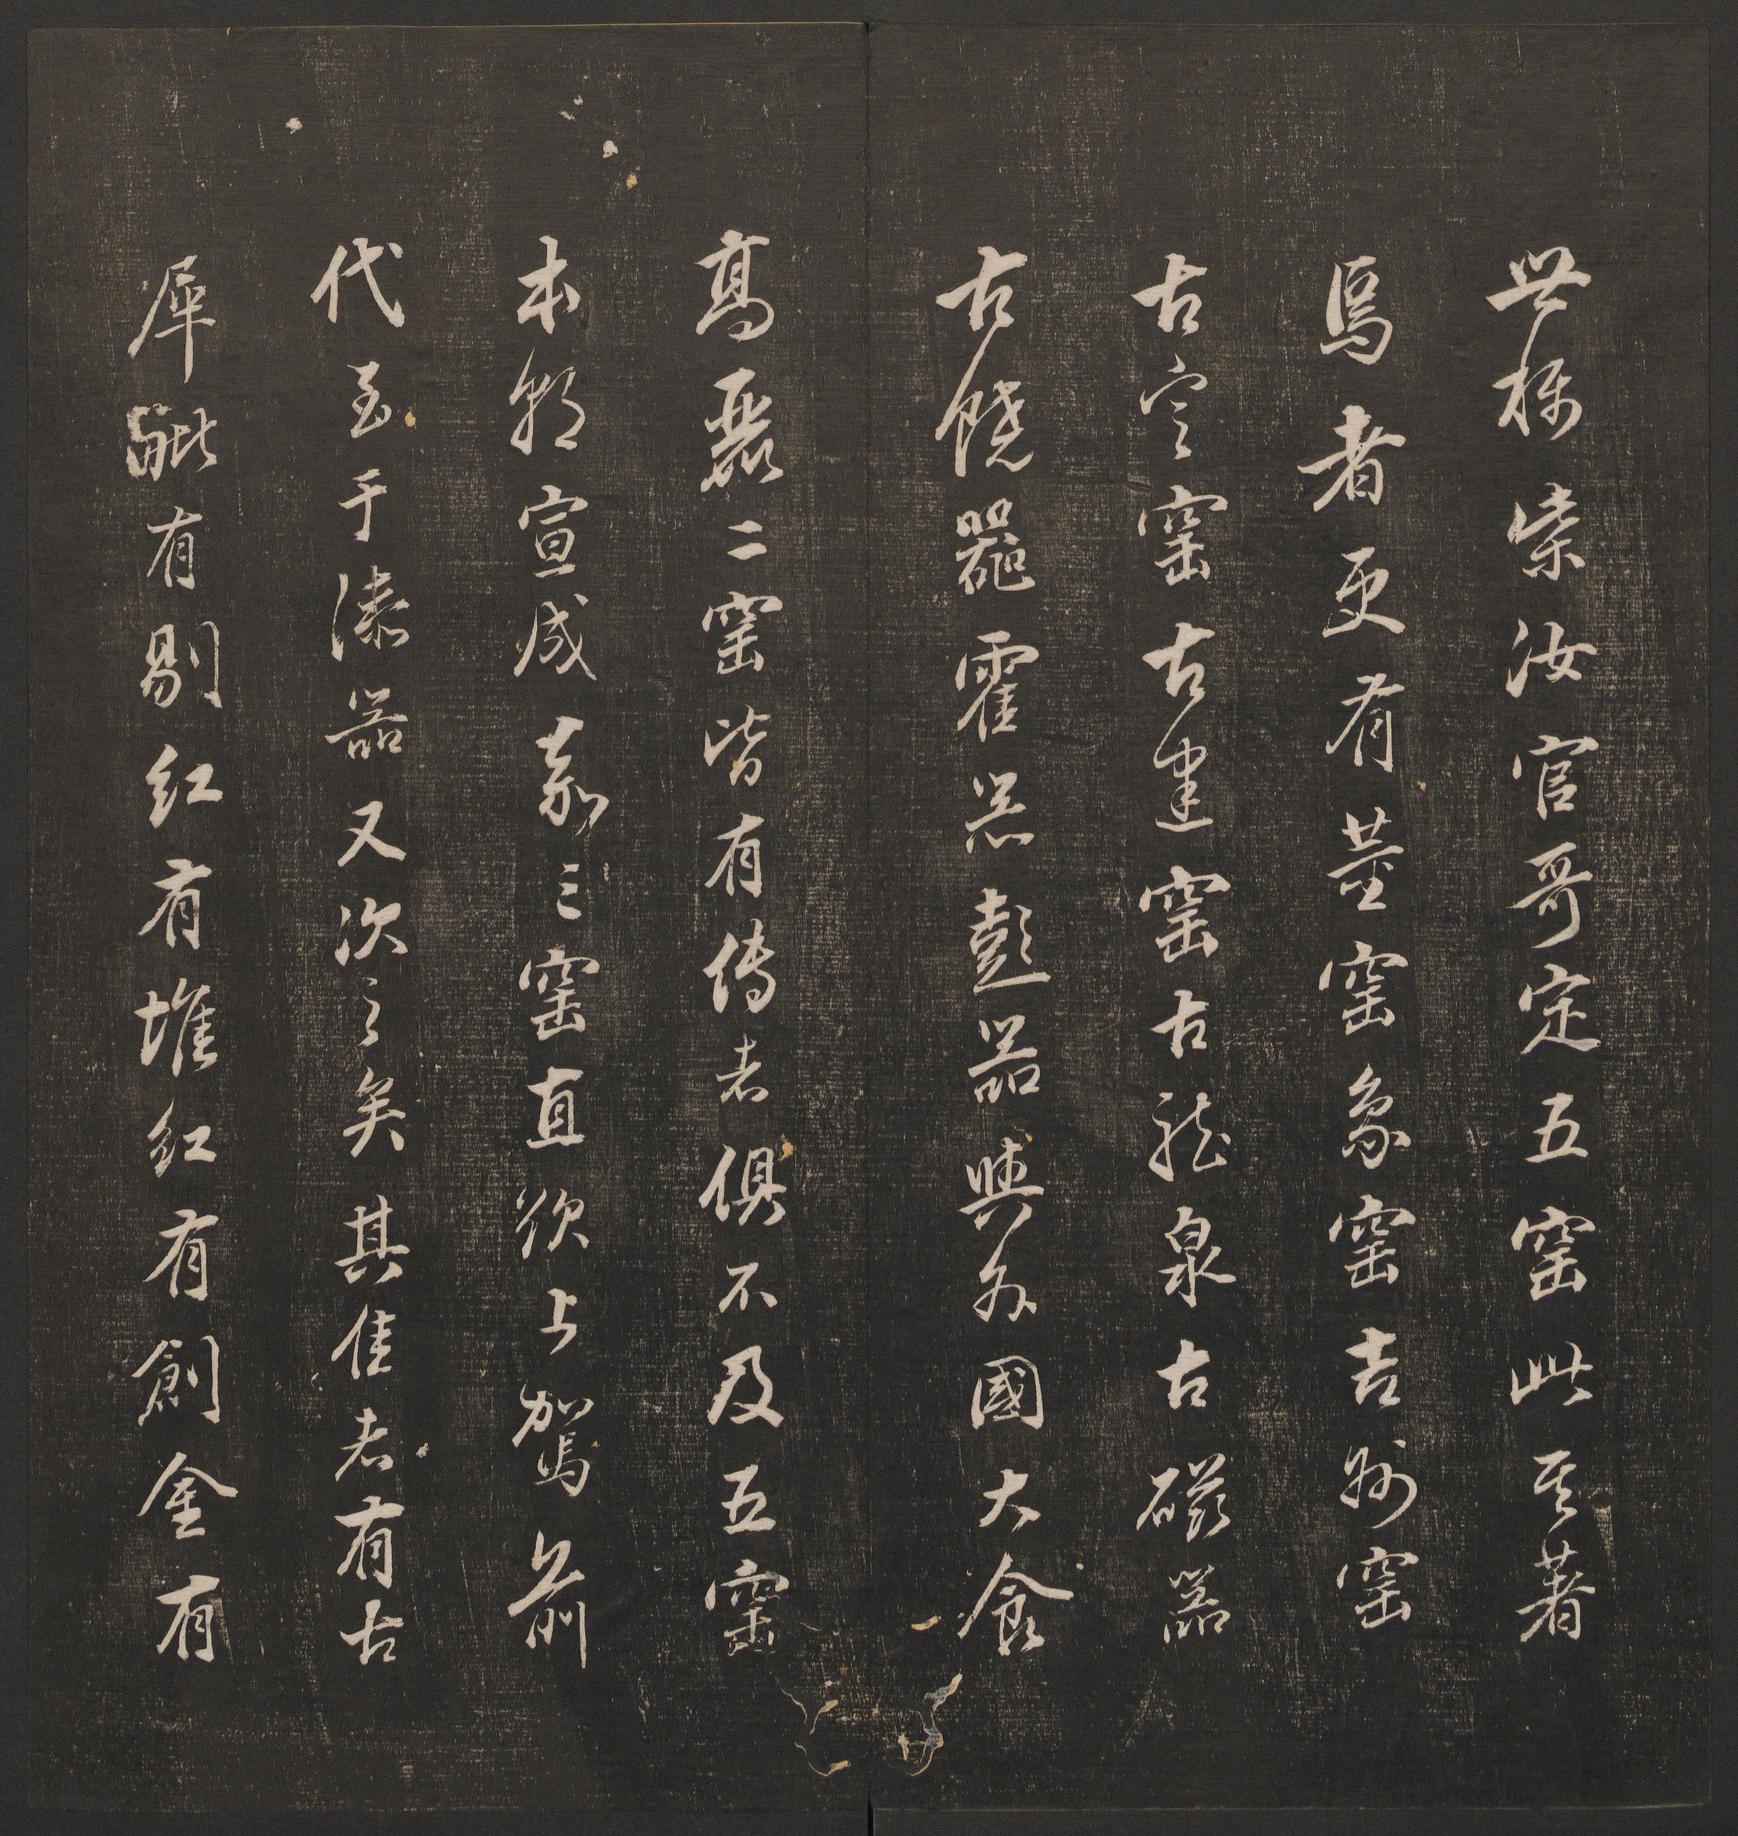 世称柴汝官哥定五窑此其著
焉者更有董窑象窑吉州窑
古定窑古建窑古龙泉古磁器
古饶器霍器彭器与外國大食
高麗二窑皆有传者俱不及五窑
本朝宣成嘉三窑直欲上駕前
代至于漆器又次之矣其佳者有古
犀毗有剔红有堆红有創金有